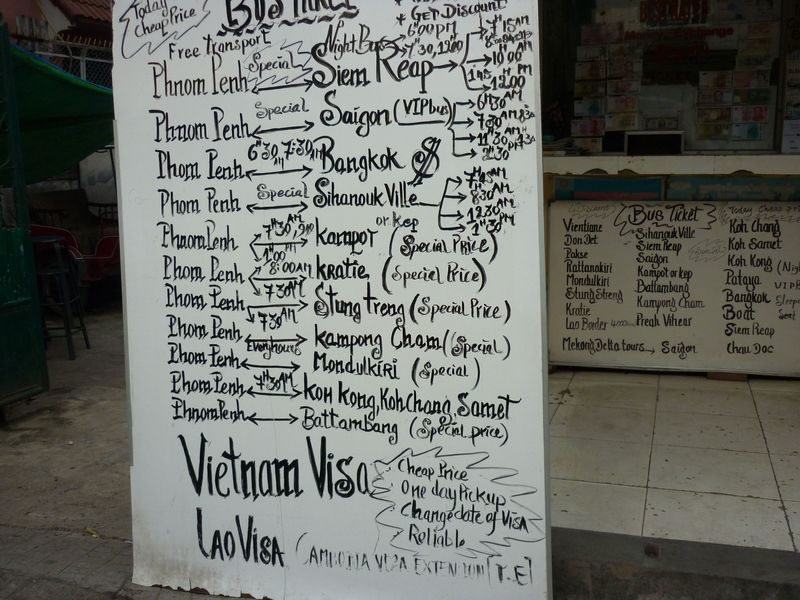 Today
Cheap Price
BUS TICKET
GET Discount
Free transport
Night Bus
6:00 PM
7"30, 12:00
Phnom Penh Special Siem Reap
7"15 AM
10"00 AM
12:00
Phnom Penh Special Saigon (VIP bus)
6"30 AM
7"30
11"30
2"30
Phom Penh 6"30, 7:30 AM Bangkok $
Phom Penh Special Sihanouk Ville
7"45 AM
8"30 AM
12.30
1"30 PM
or Kep
Phnom Penh 7"30 AM Kampot (Special Price)
1"00 PM
Phom Penh 8:00 AM Kratie (Special Price)
Phom Penh 7"30 AM Stung treng (Special Price)
7"30
Phom Penh Every hours Kampong Cham (Special)
Phom Penh Mondulkiri (Special)
Phom Penh 7"30 AM KOH KONG, Koh Chang, Samet
Phnom Penh Battambang (Special price)
Vietnam Visa
Cheap Price
One day Pick up
Change date of VISA
Reliable
LAO VISA
CAMBODIA VISA EXTENTION [T.E]
Bus Ticket
Vientiane
Don Det
Pakse
Rattanakiri
Mondulkiri
Stung Streng
Kratie
Lao Border
Mekong Delta tours → Saigon
Sihanouk Ville
Siem Reap
Saigon
Kampot or kep
Battambang
Kampong Cham
Preah Vihear
Today Cheap
Koh Chang
Koh Samet
Koh Kong
Pataya
Bangkok
Boat
Siem Reap
Chau Doc